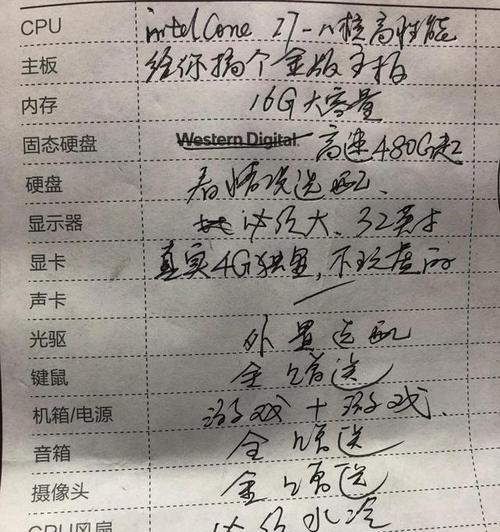 CPU intel Core i7-八核高性能
主板 给你搞个全版主板
内存 16G大容量
固态硬盘 Western Digital. 高速480G起
硬盘 看情况选配.
显示器 必须大、32英寸
显卡 真实4G独显,不玩虚的
声卡
光驱 外置选配
键鼠 全赠送
机箱/电源 游戏+游戏.
音箱 全赠送
摄像头 全赠送
CPU风扇 必须水冷